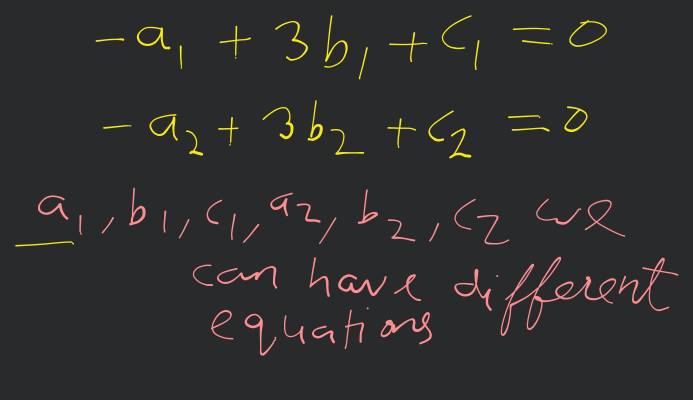 -a₁ + 3b₁ + c₁ = 0
-a₂ + 3b₂ + c₂ = 0
a₁, b₁, c₁, a₂, b₂, c₂ we
can have different
equations